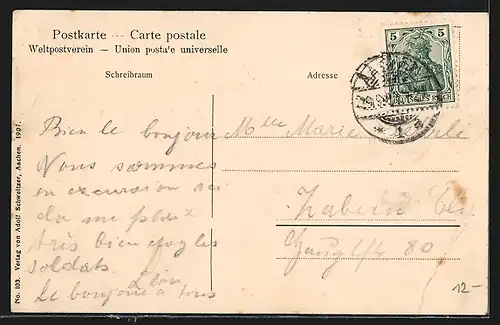 Postkarte — Carte postale
Weltpostverein — Union postale universelle
Schreibraum
Adresse
5 5
DEUTSCHES REICH
Bien le bonjour
Nous sommes
en excursion
très bien
soldats.
Léon
Le bonjour à tous
Mlle Marie
Zabern Els
80
12-
No. 103. Verlag von Adolf Schweitzer, Aachen. 1907.